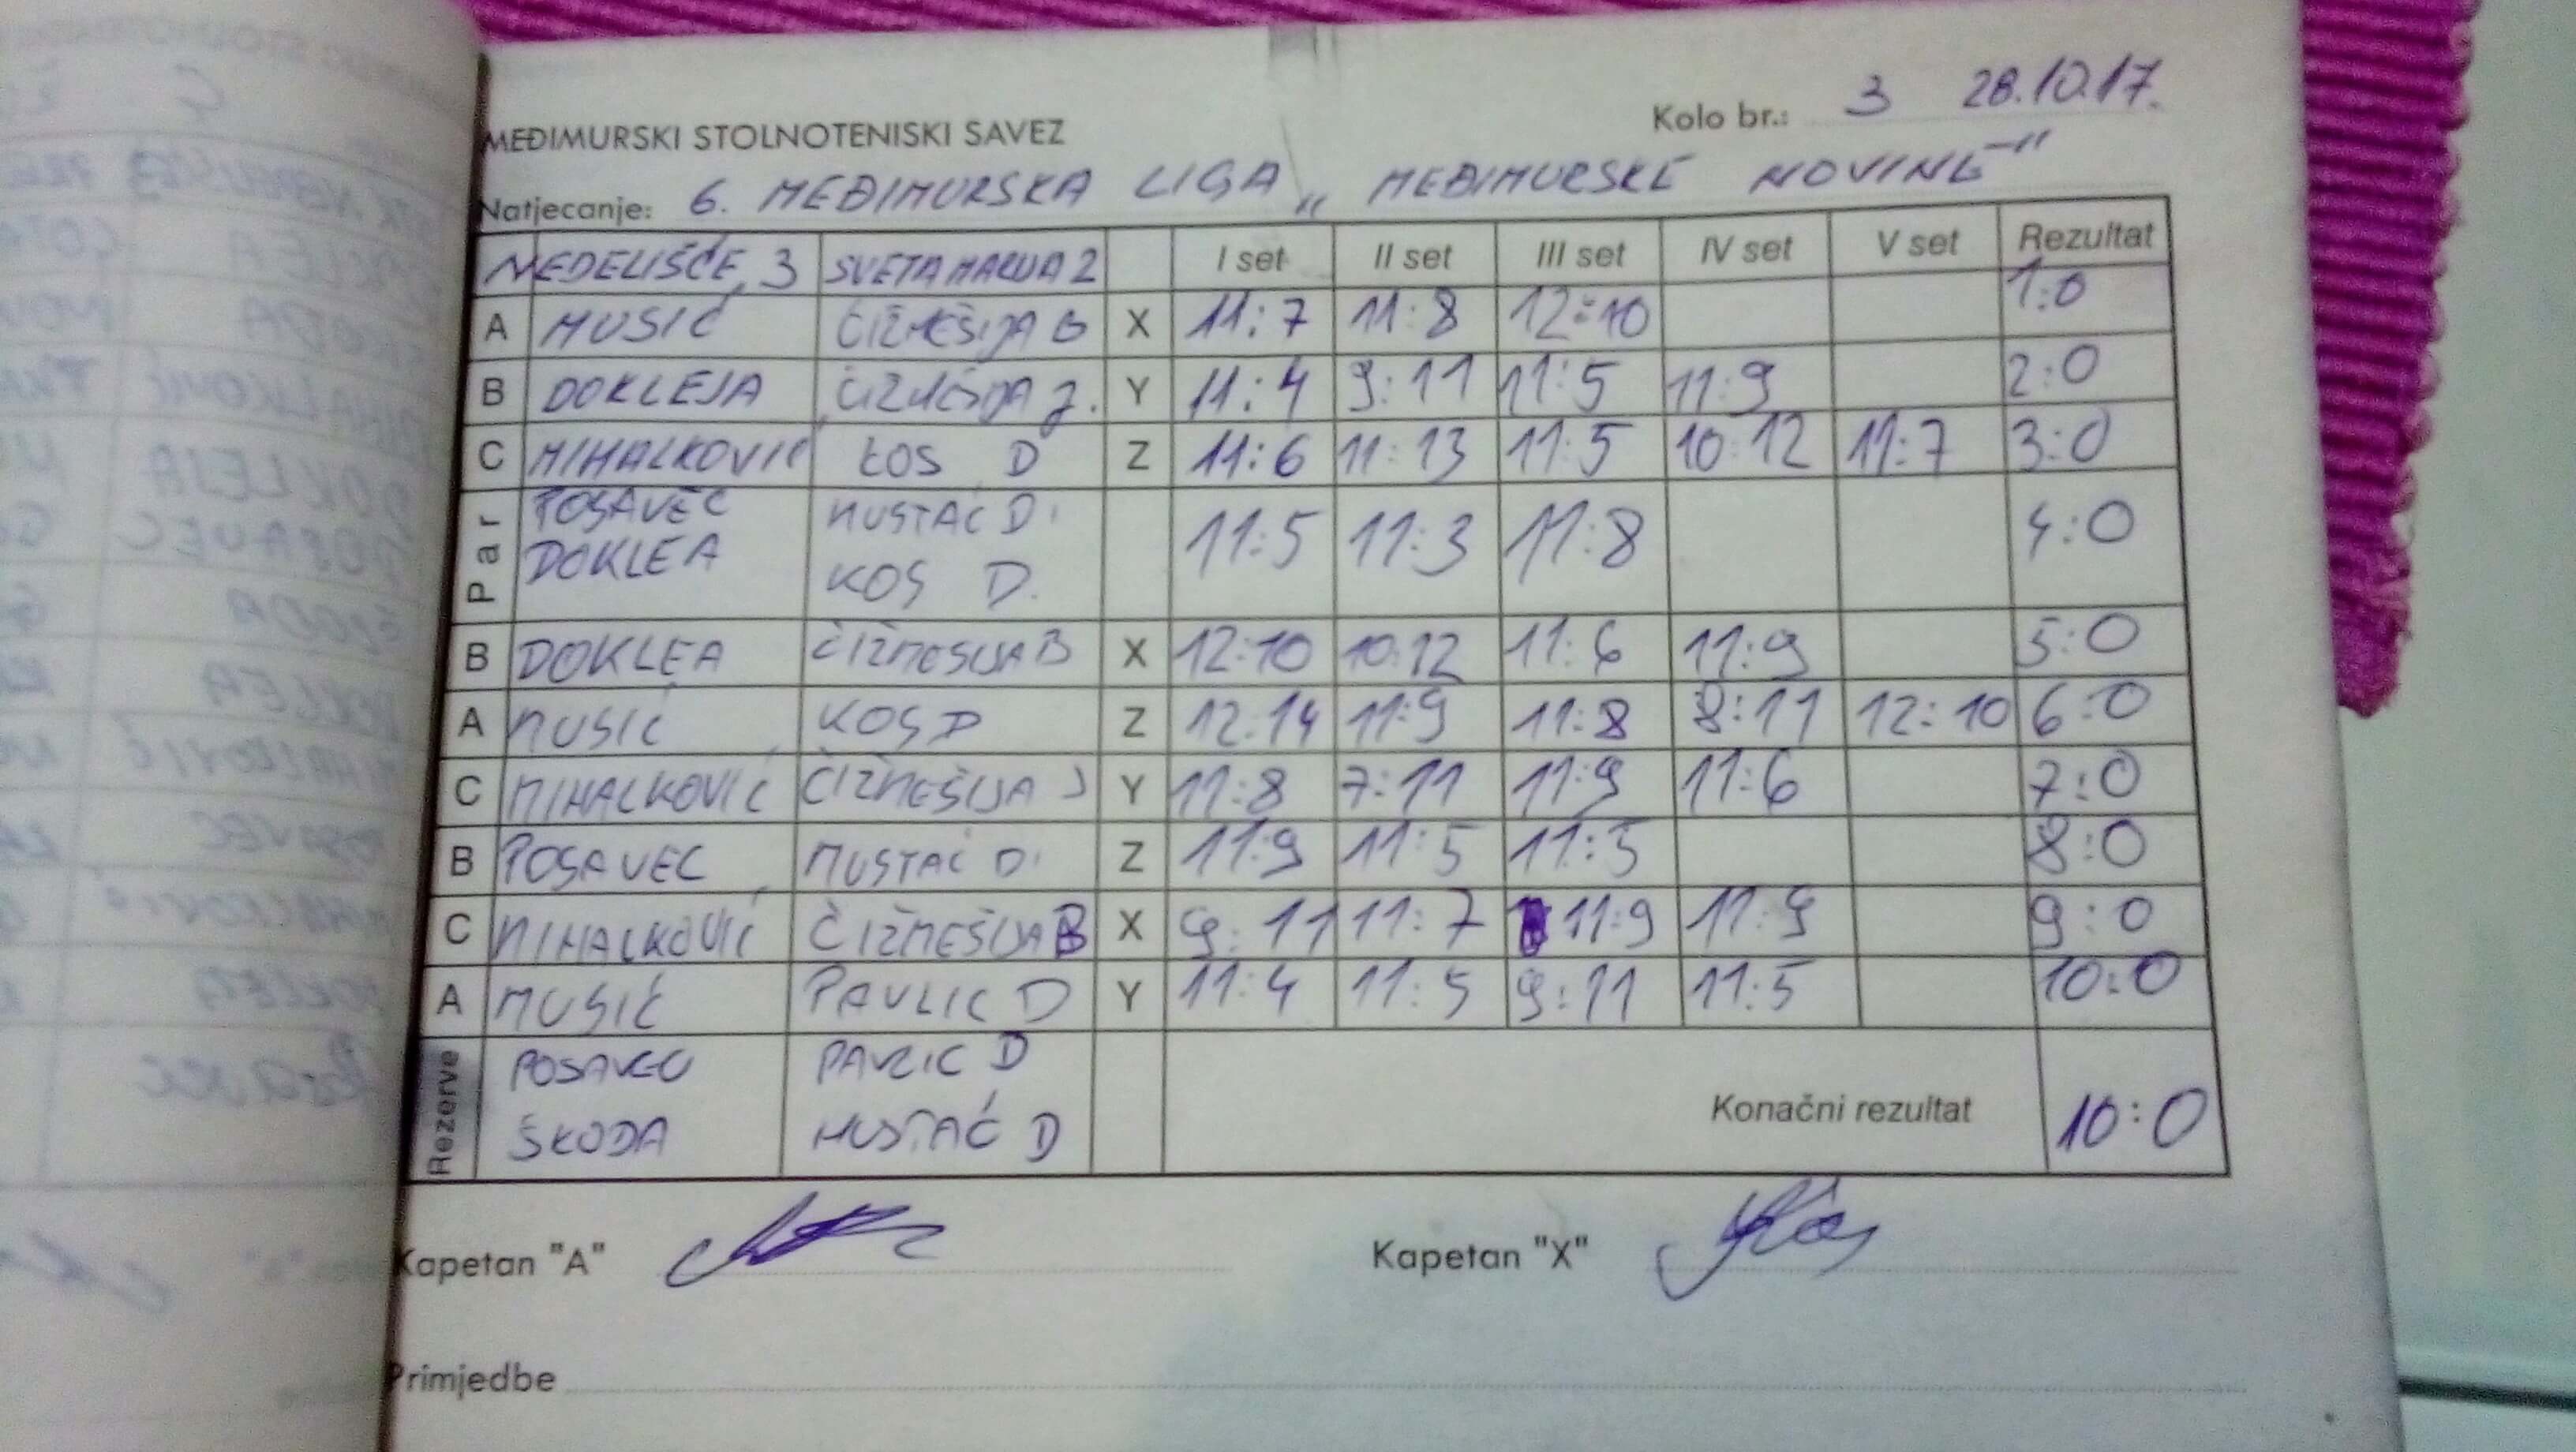 MEĐIMURSKI STOLNOTENISKI SAVEZ
Kolo br.: 3 28.10.17.
Natjecanje: 6. MEĐIMURSKA LIGA „MEĐIMURSKE NOVINE"
NEDELIŠĆE 3 SVETA MARIJA 2 I set II set III set IV set V set Rezultat
A MUSIĆ ČIŽMEŠIJA B X 11:7 11:8 12:10 1:0
B DOKLEJA ČIŽMEŠIJA J. Y 11:4 9:11 11:5 11:9 2:0
C MIHALKOVIĆ KOS D Z 11:6 11:13 11:5 10:12 11:7 3:0
Par POSAVEC MUSTAĆ D.
DOKLEA KOS D. 11:5 11:3 11:8 4:0
B DOKLEA ČIŽMEŠIJA B X 12:10 10:12 11:6 11:9 5:0
A MUSIĆ KOS D Z 12:14 11:9 11:8 8:11 12:10 6:0
C MIHALKOVIĆ ČIŽMEŠIJA J Y 11:8 7:11 11:9 11:6 7:0
B POSAVEC MUSTAĆ D. Z 11:9 11:5 11:5 8:0
C MIHALKOVIĆ ČIŽMEŠIJA B X 9:11 11:7 11:9 11:9 9:0
A MUSIĆ PAVLIC D Y 11:4 11:5 9:11 11:5 10:0
Rezerve POSAVEC PAVLIC D
ŠKODA MUSTAĆ D Konačni rezultat 10:0
Kapetan "A" Kapetan "X"
Primjedbe